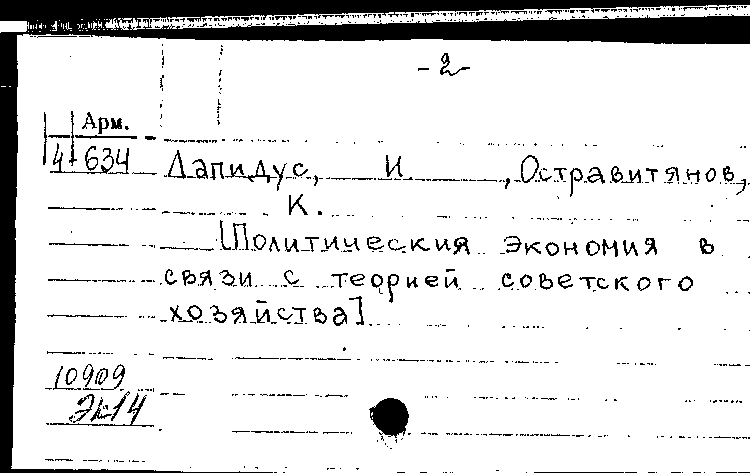 -2-
Арм.
4-634 Лапидус, И , Остравитянов,
К.
[Политическия экономия в
связи с теорией советского
хозяйства]
10909
Эк14